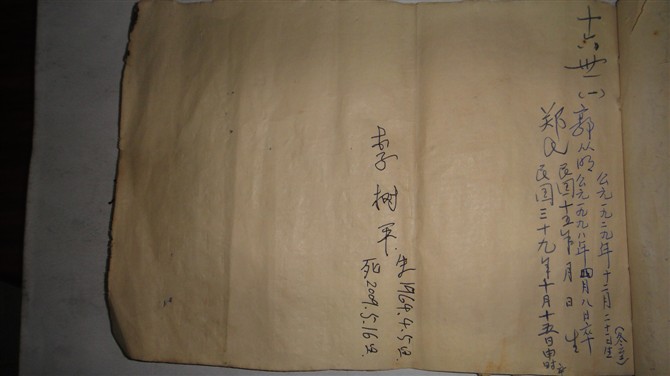 十六世
(一) 郭从明 公元一九二九年十二月二十一日生
公元一九九八年四月八日卒
郑氏 民国十五年 月 日 生
民国三十九年十月十五日申时
李树军 生1964.4.5日
死2009.5.16日